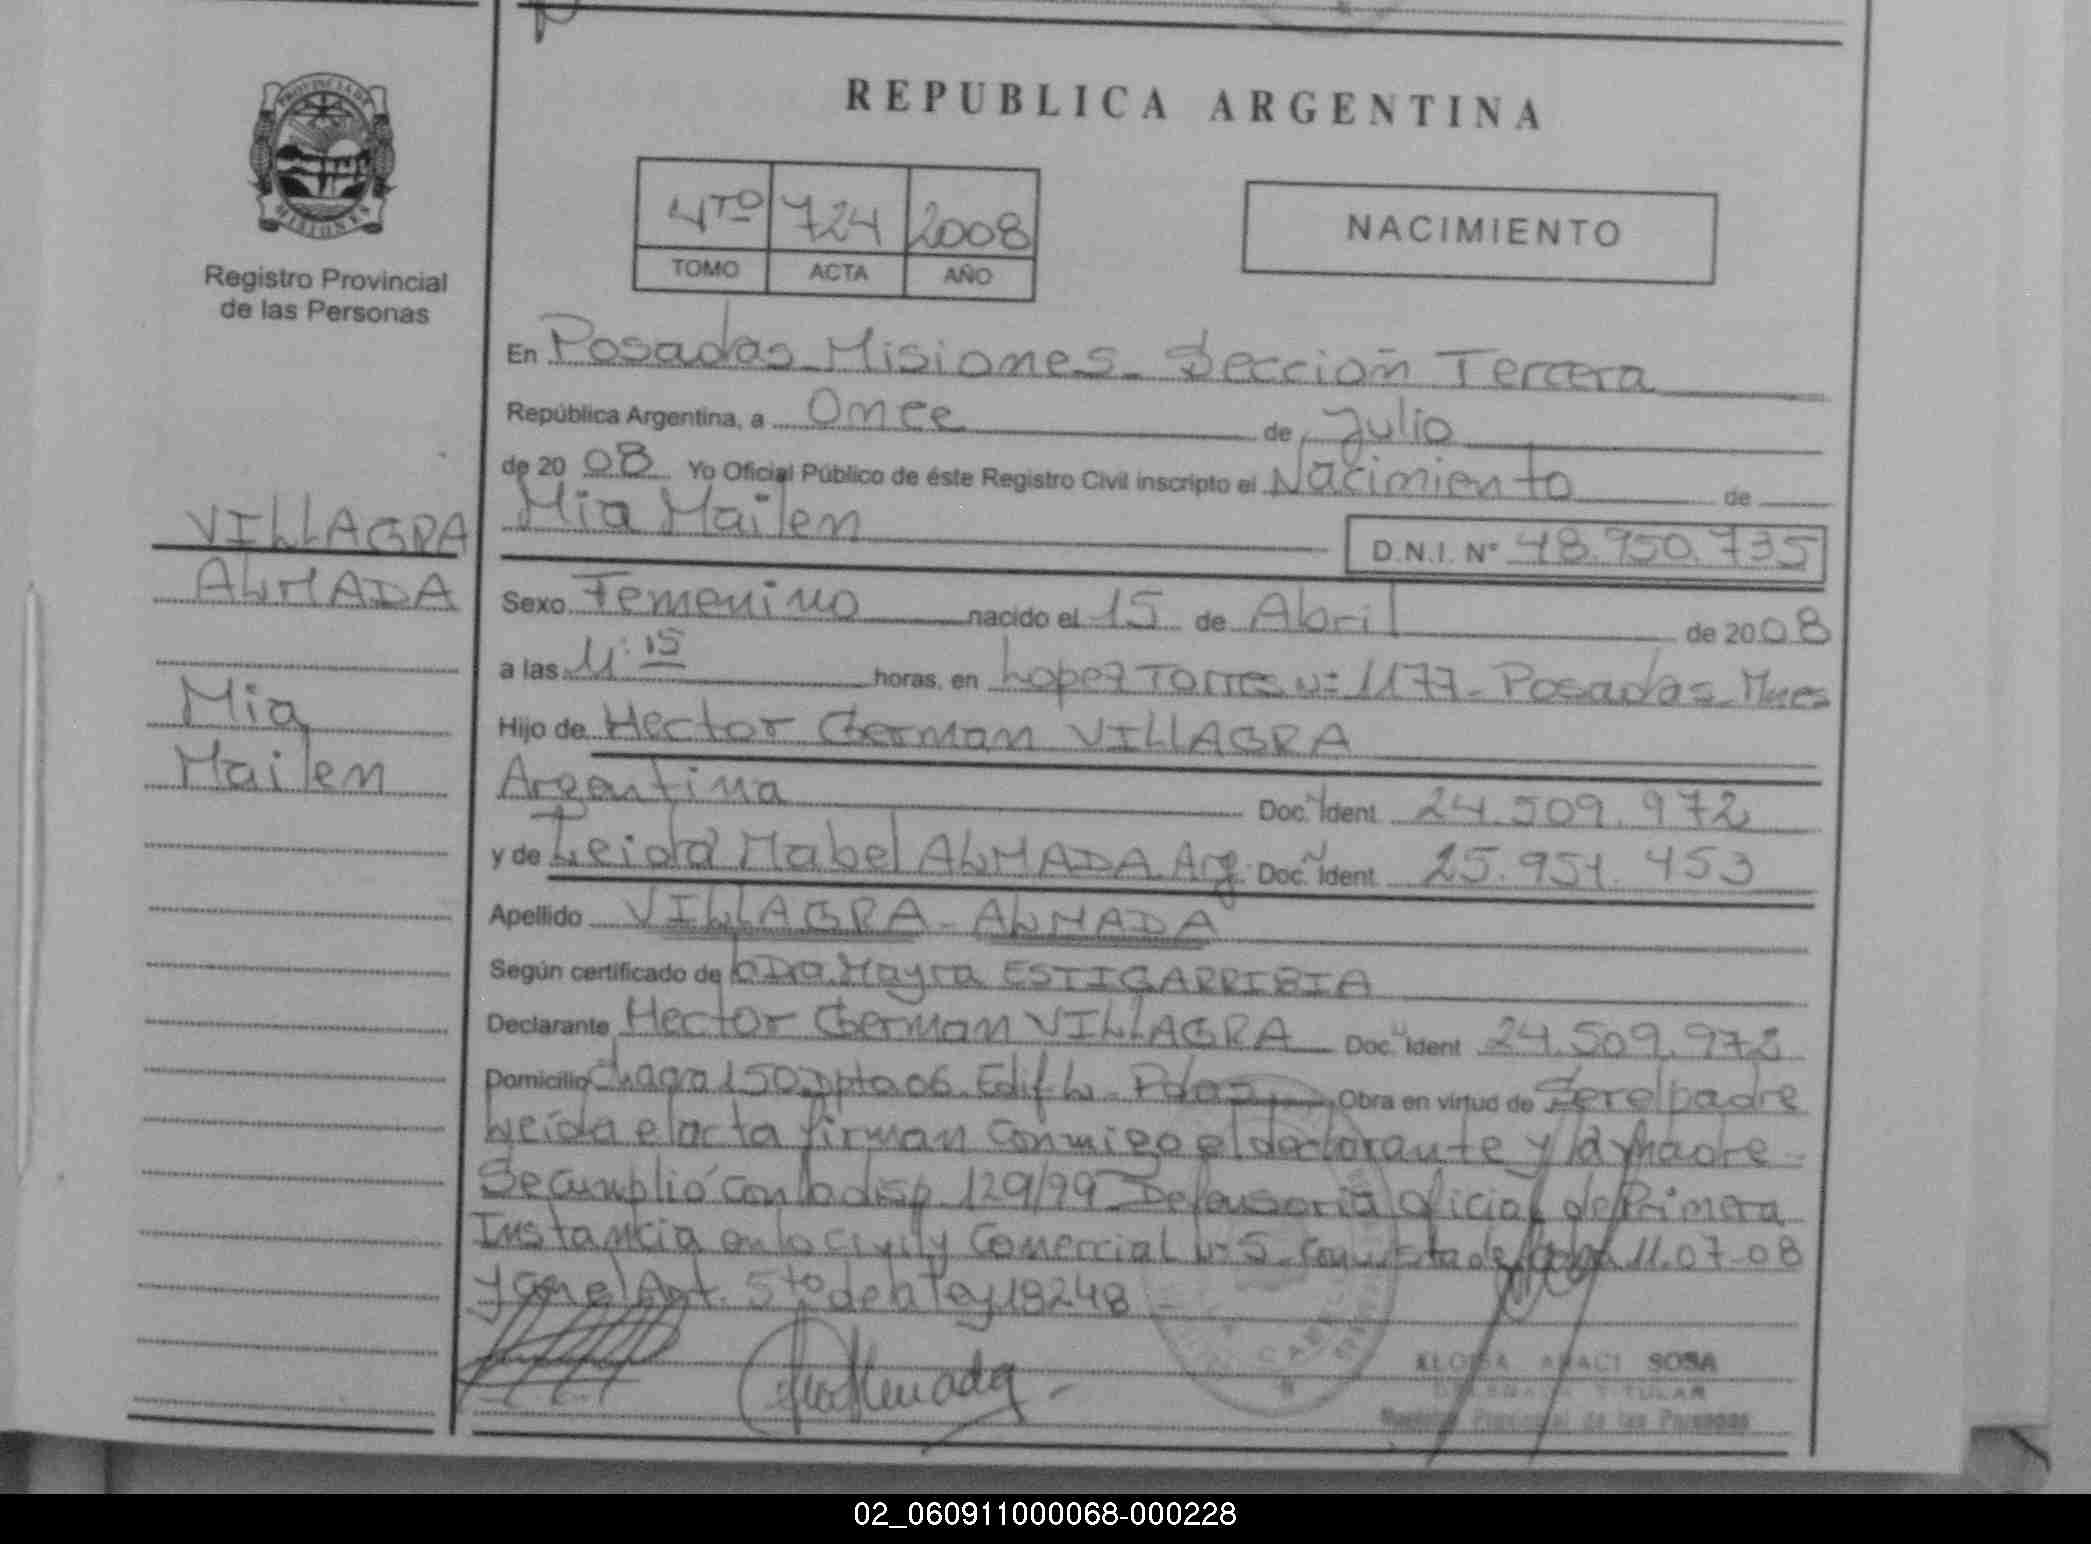 REPUBLICA ARGENTINA
PROVINCIA DE MISIONES
Registro Provincial
de las Personas
4TO 724 2008
TOMO ACTA AÑO
NACIMIENTO
En Posadas Misiones Sección Tercera
República Argentina, a Once de Julio
de 2008 Yo Oficial Público de éste Registro Civil inscripto el Nacimiento de
Mia Mailen
D.N.I. Nº 48.950.735
VILLAGRA
ALMADA
Mia
Mailen
Sexo Femenino nacido el 15 de Abril de 2008
a las 11:15 horas, en Lopez Torres Nº 1177 - Posadas - Mnes
Hijo de Hector German VILLAGRA
Argentina Doc. Ident 24.509.972
y de Leida Mabel ALMADA Arg. Doc. Ident 25.951.453
Apellido VILLAGRA - ALMADA
Según certificado de la Dra. Mayra ESTIGARRIBIA
Declarante Hector German VILLAGRA Doc. Ident 24.509.972
Domicilio Chacra 150 Dpto 06 Edif L - Pdas Obra en virtud de Ser el padre
Leida el acta firman conmigo el declarante y la madre -
Se cumplió con la disp 129/99 Defensoria Oficial de Primera
Instancia en lo Civil y Comercial Nº 5 - con vista de 11-07-08
y con el Art. 5to de la ley 18248
ELOISA ARACI SOSA
DELEGADA TITULAR
Registro Provincial de las Personas
02_060911000068-000228